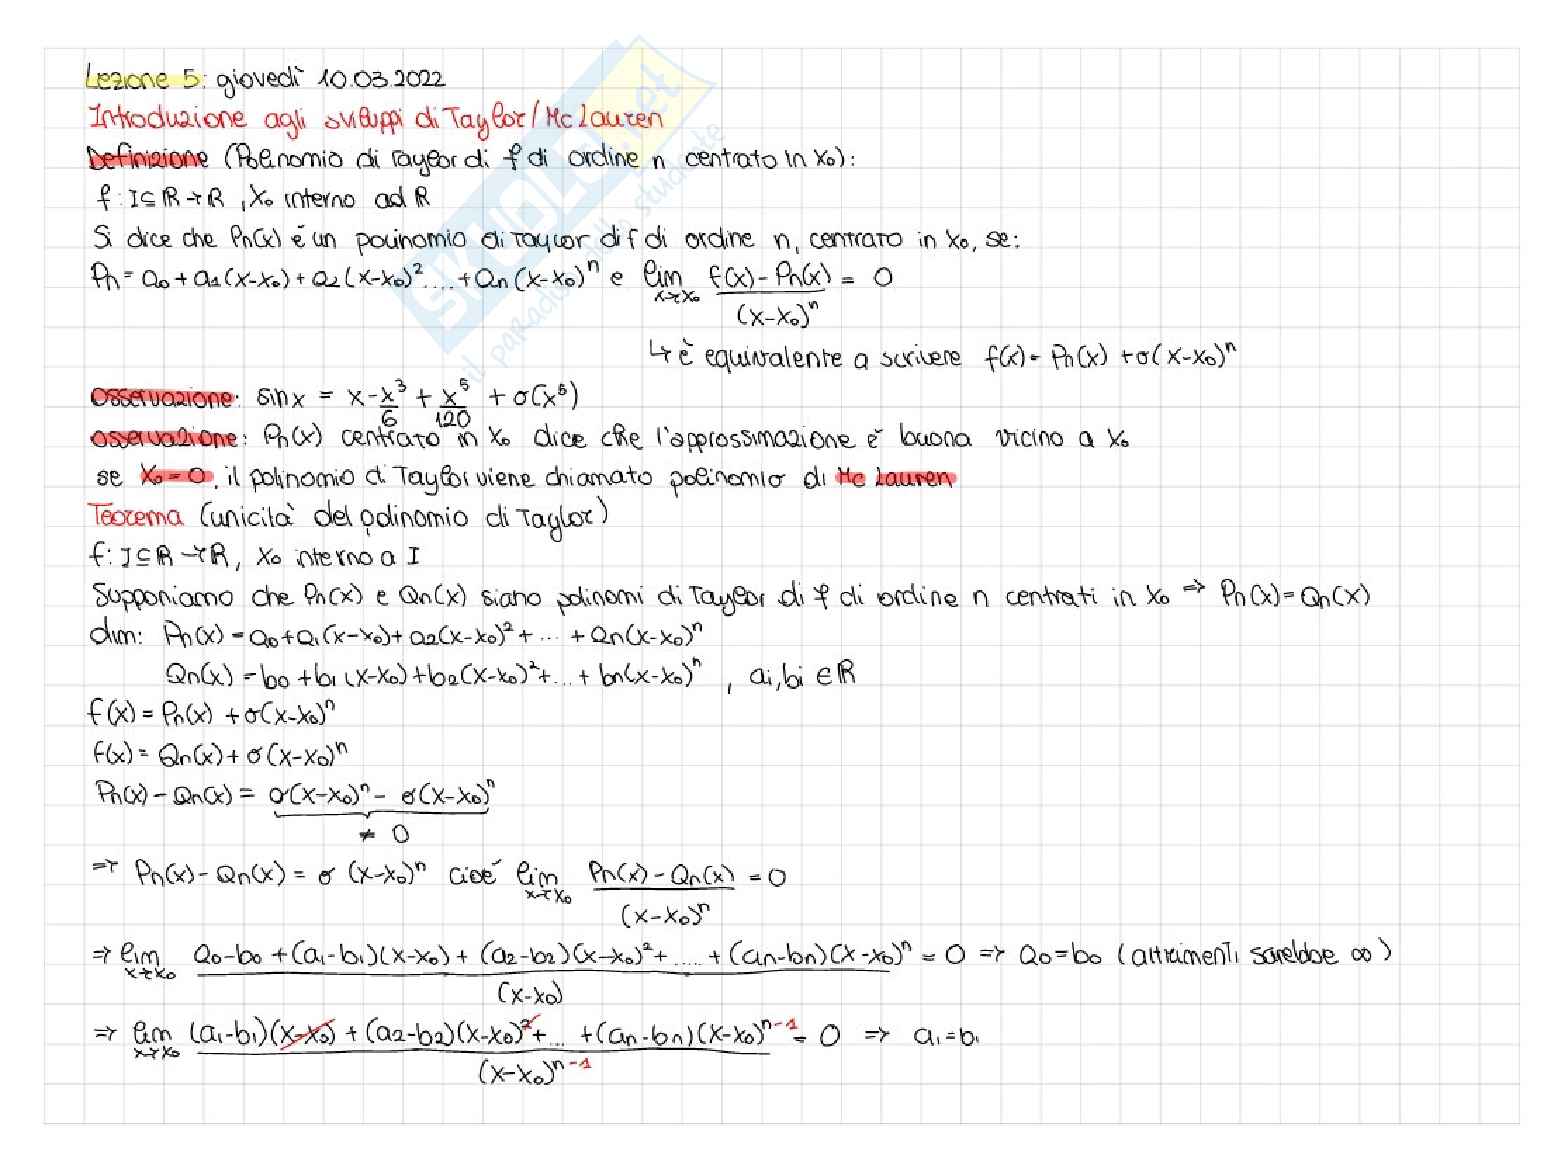 Lezione 5: giovedì 10.03.2022
Introduzione agli sviluppi di Taylor/Mc Lauren
Definizione (Polinomio di Taylor di f di ordine n centrato in x₀):
f: I⊆ℝ→ℝ, x₀ interno ad ℝ
Si dice che Pn(x) è un polinomio di Taylor di f di ordine n, centrato in x₀, se:
Pn = a₀ + a₁(x-x₀) + a₂(x-x₀)² .... + an(x-x₀)ⁿ e lim x→x₀ (f(x) - Pn(x))/(x-x₀)ⁿ = 0
↳ è equivalente a scrivere f(x) = Pn(x) + σ(x-x₀)ⁿ
Osservazione: sin x = x - x³/6 + x⁵/120 + σ(x⁵)
Osservazione: Pn(x) centrato in x₀ dice che l'approssimazione è buona vicino a x₀
se x₀ = 0, il polinomio di Taylor viene chiamato polinomio di Mc Lauren
Teorema (unicità del polinomio di Taylor)
f: I⊆ℝ→ℝ, x₀ interno a I
Supponiamo che Pn(x) e Qn(x) siano polinomi di Taylor di f di ordine n centrati in x₀ ⇒ Pn(x) = Qn(x)
dim: Pn(x) = a₀ + a₁(x-x₀) + a₂(x-x₀)² + ... + an(x-x₀)ⁿ
Qn(x) = b₀ + b₁(x-x₀) + b₂(x-x₀)² + ... + bn(x-x₀)ⁿ, ai, bi ∈ℝ
f(x) = Pn(x) + σ(x-x₀)ⁿ
f(x) = Qn(x) + σ(x-x₀)ⁿ
Pn(x) - Qn(x) = σ(x-x₀)ⁿ - σ(x-x₀)ⁿ
≠ 0
⇒ Pn(x) - Qn(x) = σ (x-x₀)ⁿ cioè lim x→x₀ (Pn(x) - Qn(x))/(x-x₀)ⁿ = 0
⇒ lim x→x₀ (a₀-b₀ + (a₁-b₁)(x-x₀) + (a₂-b₂)(x-x₀)² + ..... + (an-bn)(x-x₀)ⁿ)/(x-x₀) = 0 ⇒ a₀ = b₀ (altrimenti sarebbe ∞)
⇒ lim x→x₀ ((a₁-b₁)(x-x₀) + (a₂-b₂)(x-x₀)² + ... + (an-bn)(x-x₀)ⁿ⁻¹)/(x-x₀)ⁿ⁻¹ = 0 ⇒ a₁ = b₁
SKUOLA.net
il paradiso dello studente